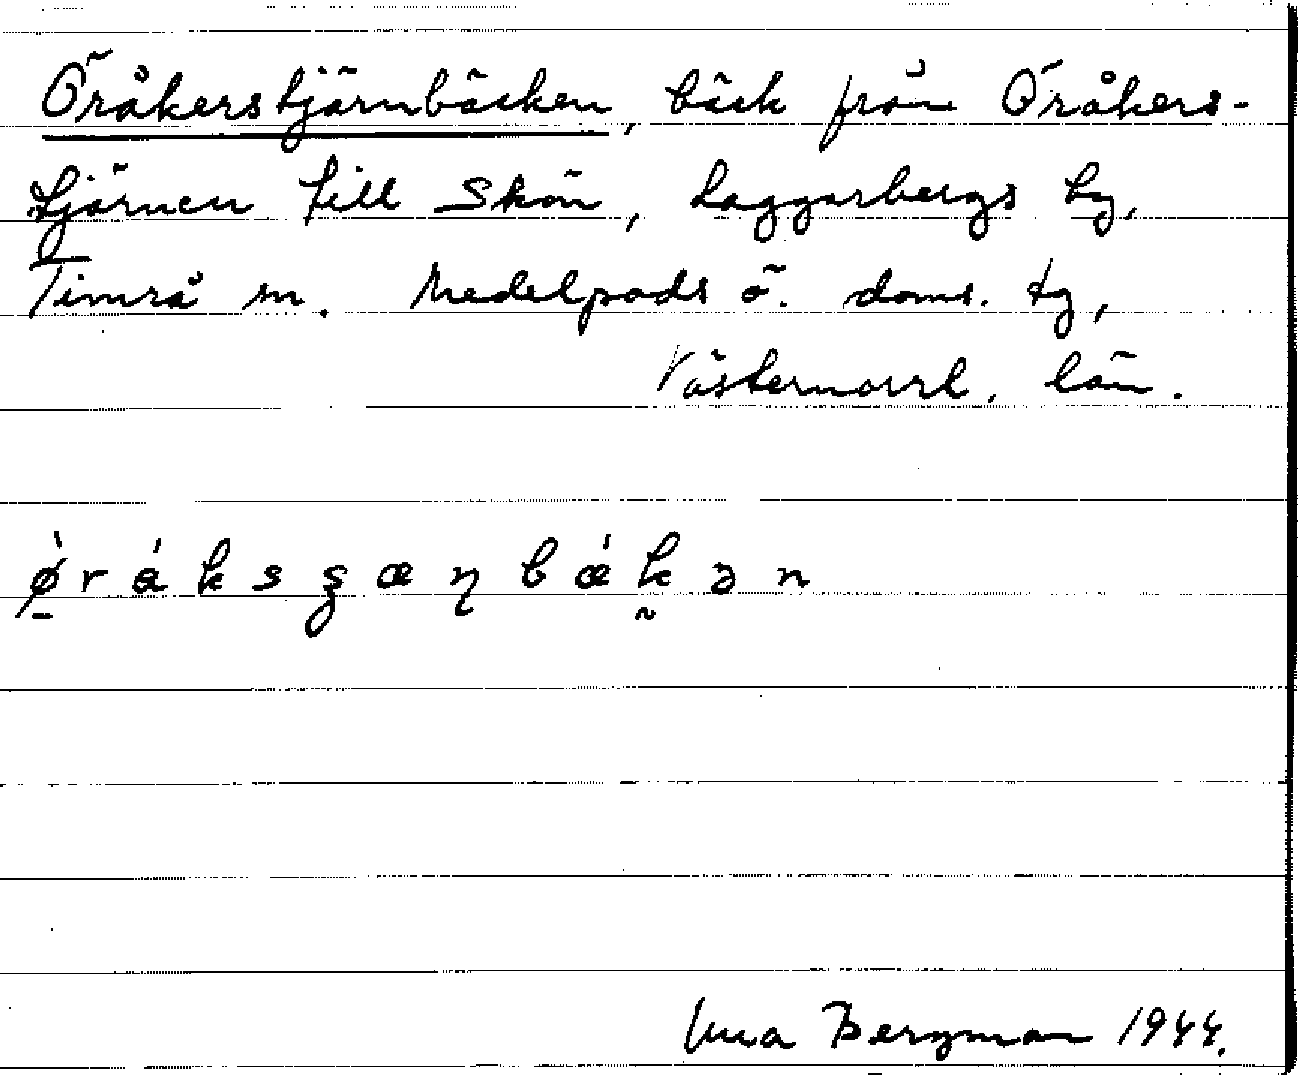 Öråkerstjärnbäcken, bäck från Öråkers-
tjärnen till Skön, Laggarbergs tg,
Timrå sn. Medelpads ö. doms. tg,
Västernorrl. län.
ǿ̱ráksʂœɳbǽk̰ən
Bergman 1944.